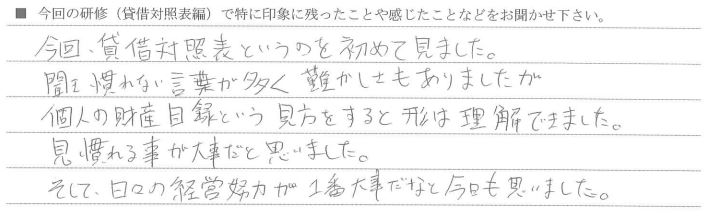 ■ 今回の研修（貸借対照表編）で特に印象に残ったことや感じたことなどをお聞かせ下さい。
今回、貸借対照表というのを初めて見ました。
聞き慣れない言葉が多く難かしさもありましたが
個人の財産目録という見方をすると形は理解できました。
見慣れる事が大事だと思いました。
そして、日々の経営努力が1番大事だなと今日も思いました。